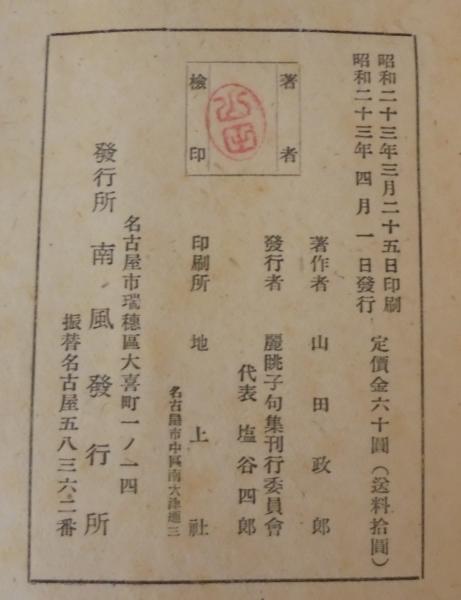 昭和二十三年三月二十五日印刷
昭和二十三年四月一日發行
定價金六十圓(送料拾圓)
著者
檢印
山田
著作者 山田政郎
發行者 麗眺子句集刊行委員會
代表 塩谷四郎
印刷所 地上社
名古屋市中區南大津通三
名古屋市瑞穗區大喜町一ノ一四
發行所 南風發行所
振替名古屋五八三六二番